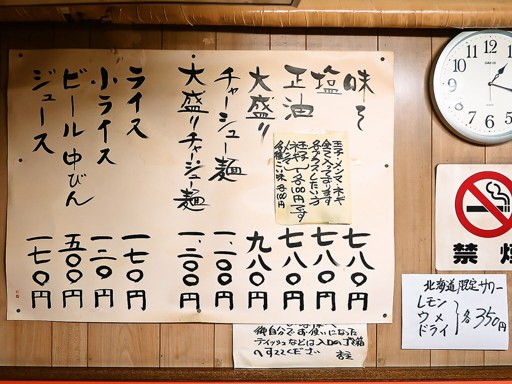 味そ 七八〇円
塩 七八〇円
正油 七八〇円
大盛り 九八〇円
チャーシュー麺 一、一〇〇円
大盛りチャーシュー麺 一、三〇〇円
ライス 一七〇円
小ライス 一二〇円
ビール中びん 五〇〇円
ジュース 一七〇円
玉子・メンマ・ネギ
全て入っております
各プラスしたい方
各100円です
各100円
禁煙
北海道限定サワー
レモン
ウメ
ドライ
各350円
御自分でお使いになった
ティッシュなどは入口のゴミ箱
へすててください
店主